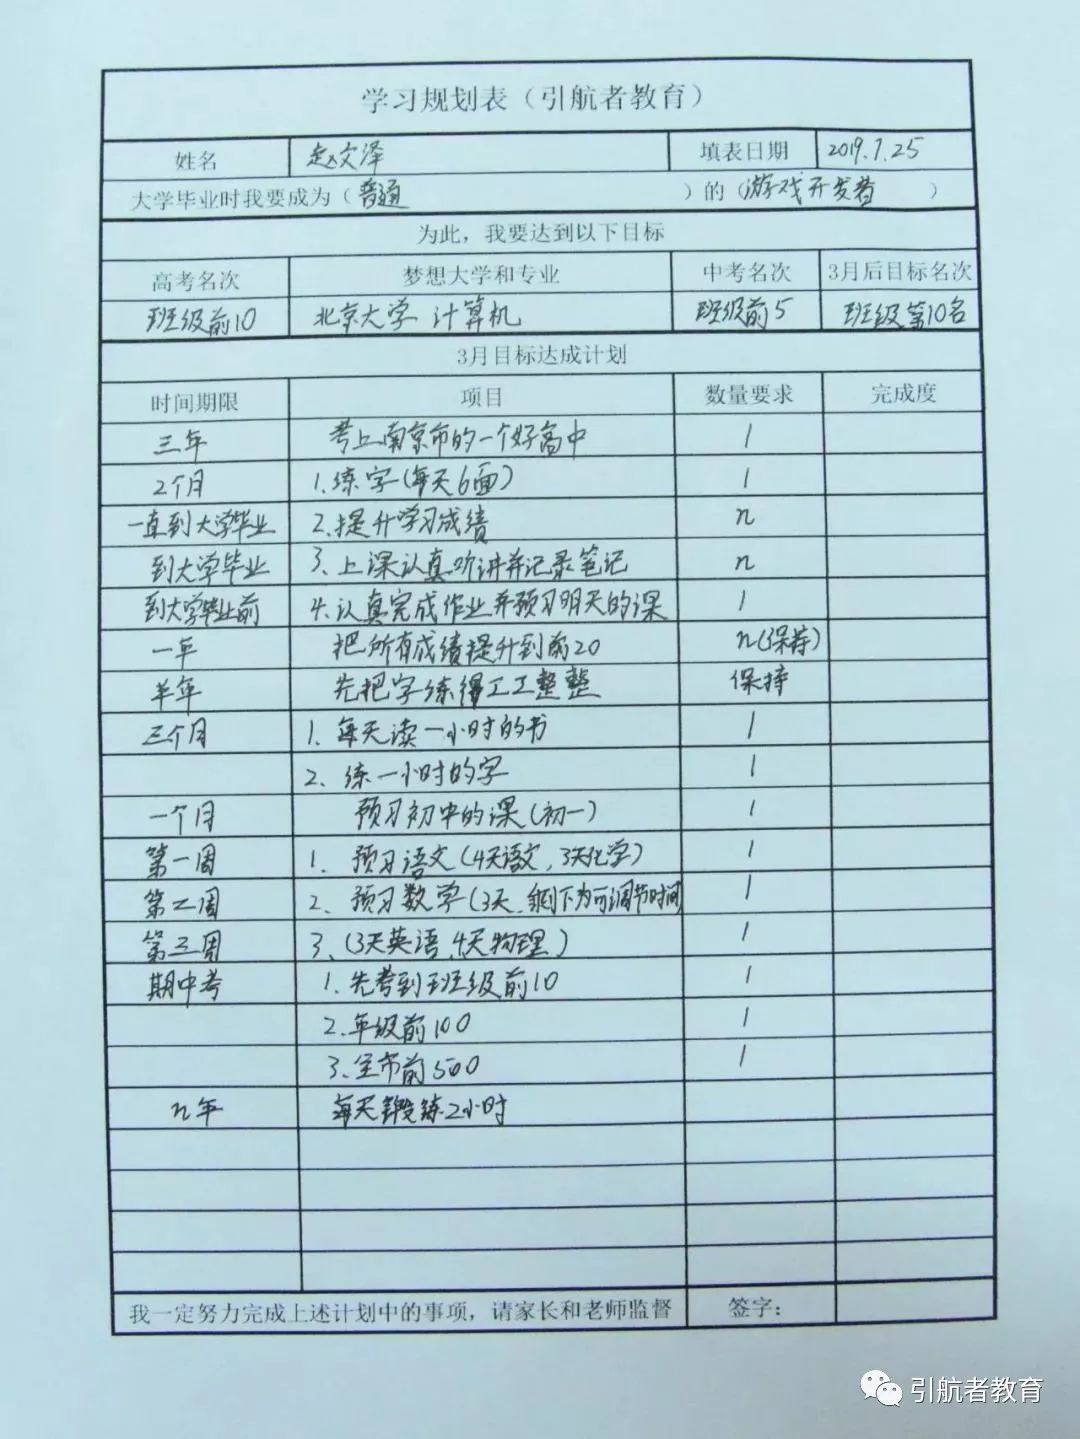 学习规划表（引航者教育）
姓名 赵文泽 填表日期 2019.7.25
大学毕业时我要成为（普通 ）的（游戏开发者 ）
为此，我要达到以下目标
高考名次 梦想大学和专业 中考名次 3月后目标名次
班级前10 北京大学 计算机 班级前5 班级第10名
3月目标达成计划
时间期限 项目 数量要求 完成度
三年 考上南京市的一个好高中 1
2个月 1.练字(每天6面) 1
一直到大学毕业 2.提升学习成绩 n
到大学毕业 3、上课认真听讲并记录笔记 n
到大学毕业前 4.认真完成作业并预习明天的课 1
一年 把所有成绩提升到前20 n(保持)
半年 先把字练得工工整整 保持
三个月 1、每天读一小时的书 1
2、练一小时的字 1
一个月 预习初中的课(初一) 1
第一周 1、预习语文(4天语文,3天化学) 1
第二周 2、预习数学(3天、剩下为可调节时间) 1
第三周 3、(3天英语、4天物理) 1
期中考 1.先考到班级前10 1
2.年级前100 1
3.全市前500 1
n年 每天锻炼2小时
我一定努力完成上述计划中的事项，请家长和老师监督 签字：
引航者教育